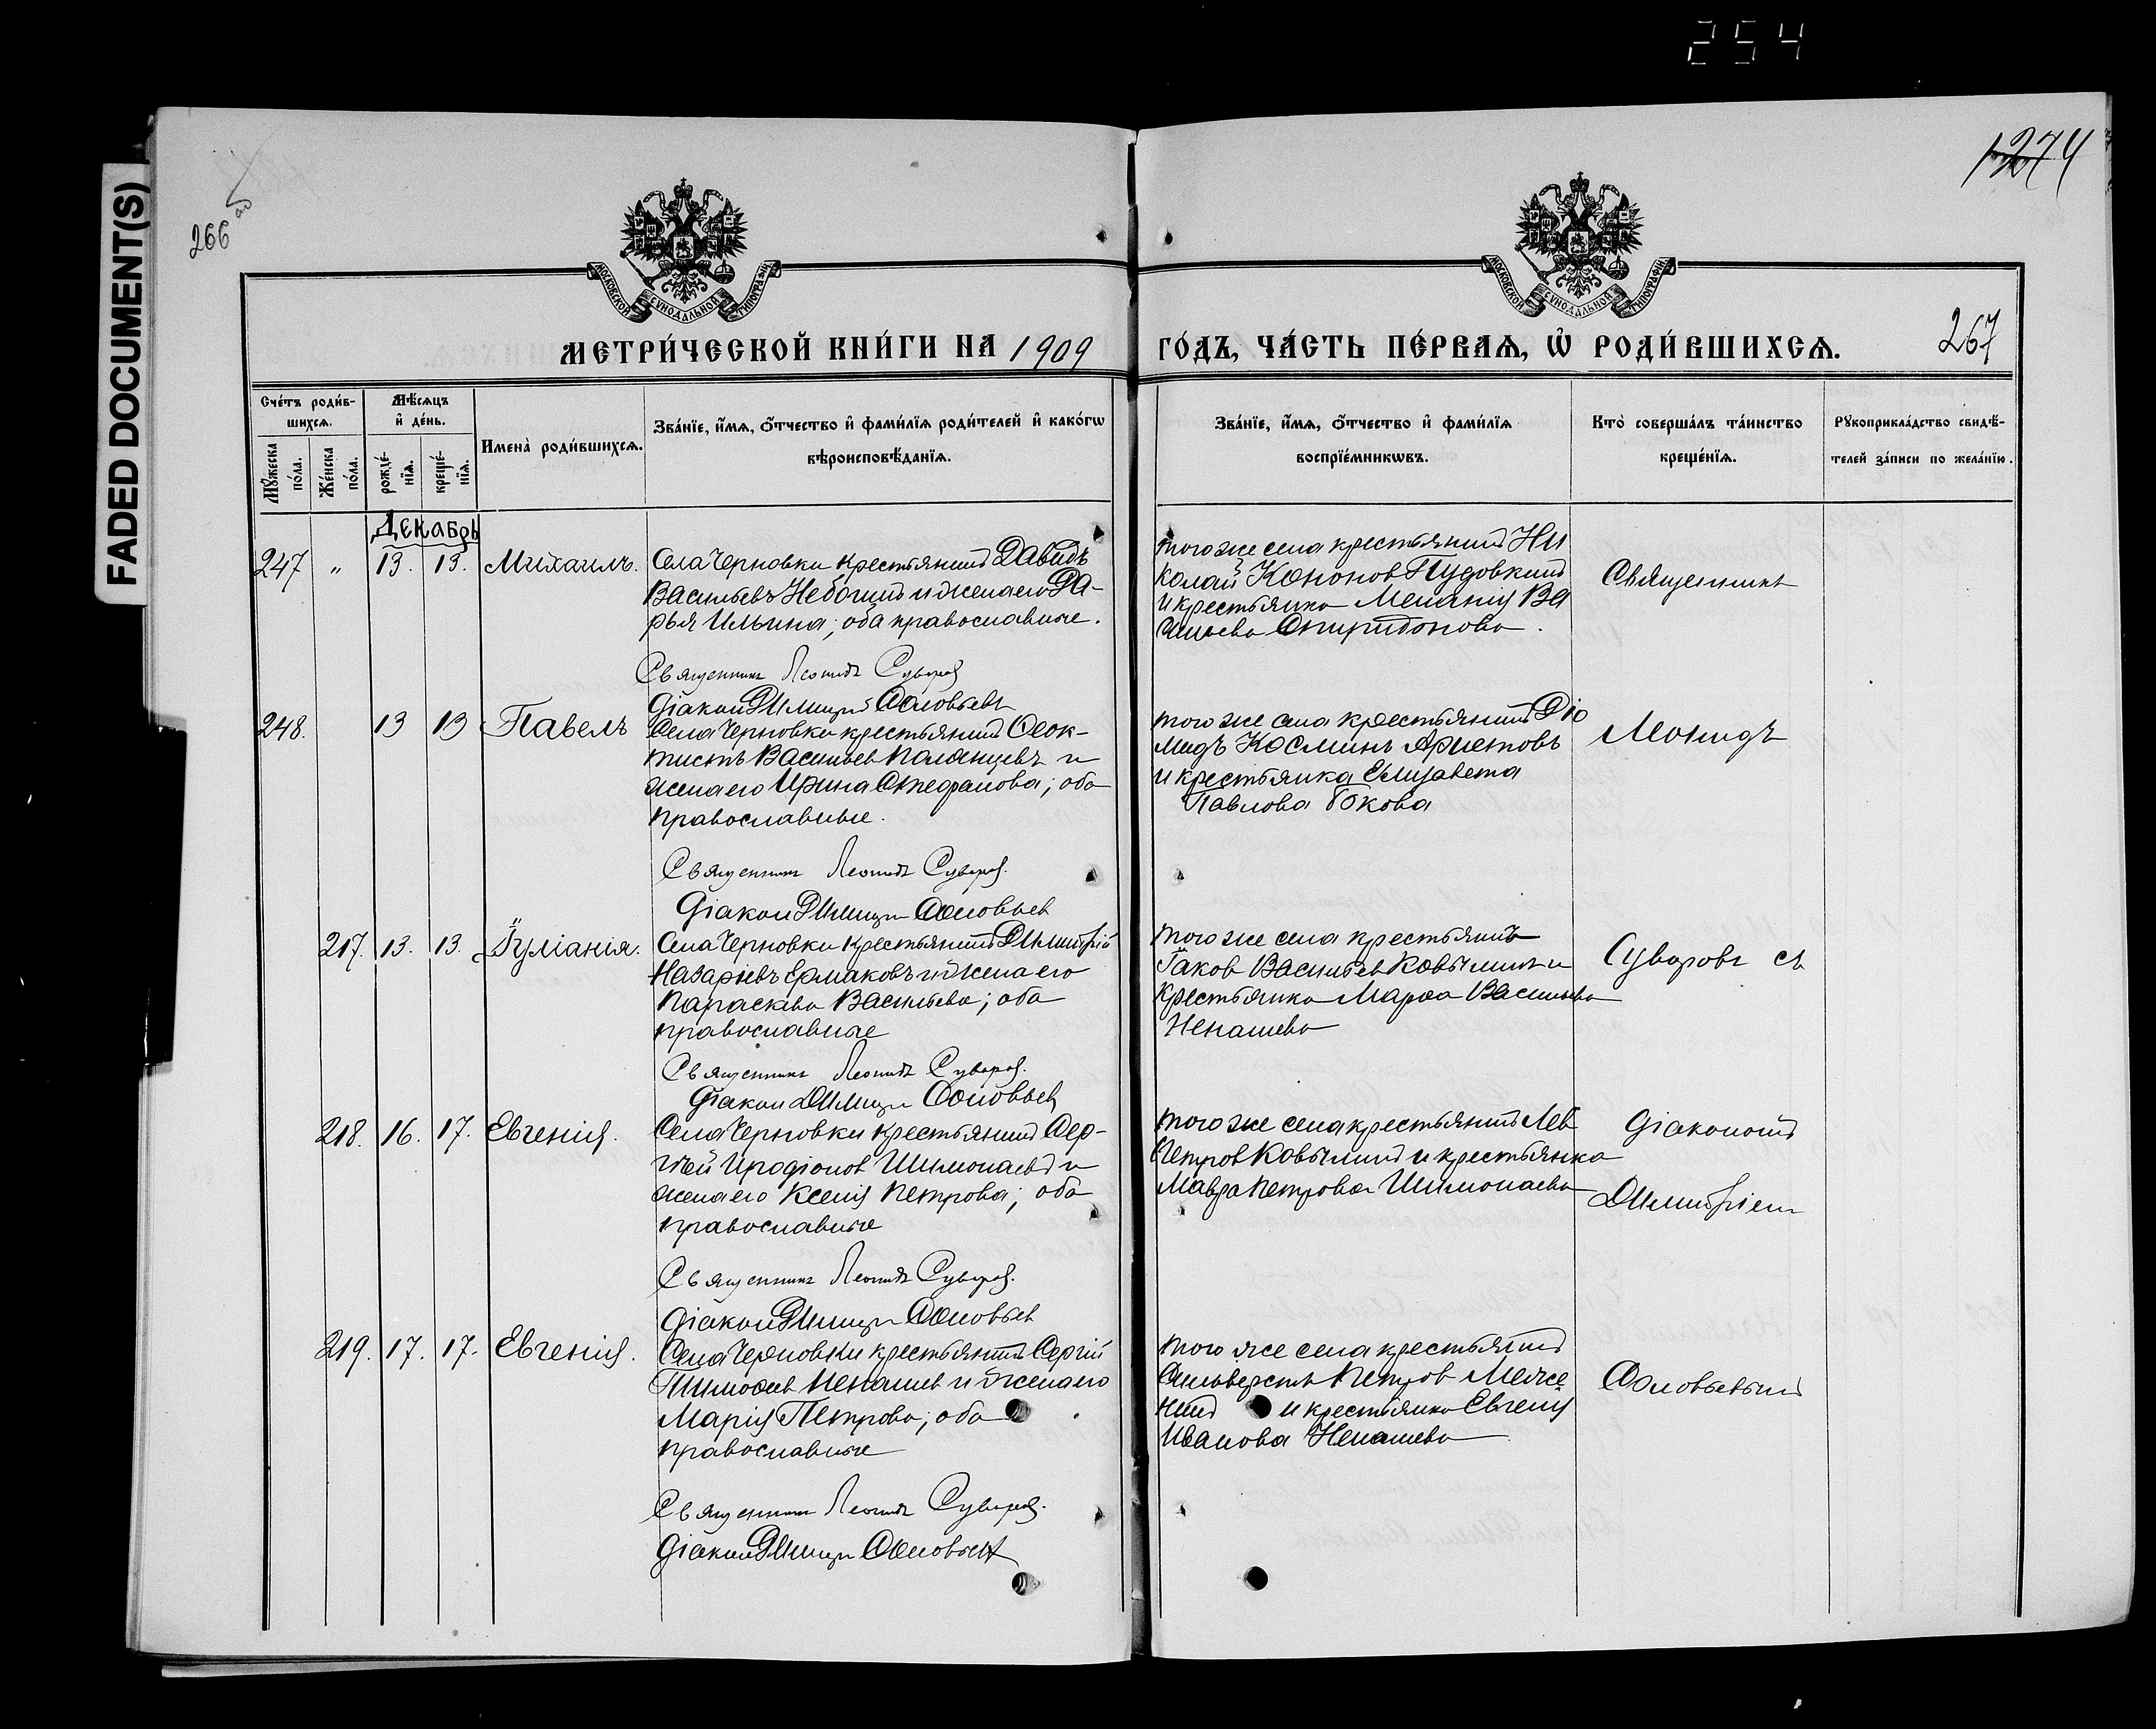 254
FADED DOCUMENT(S)
1274
266 об
МОСКОВСКОЙ СѴНОДАЛЬНОЙ ТИПОГРАФІИ
МОСКОВСКОЙ СѴНОДАЛЬНОЙ ТИПОГРАФІИ
МЕТРИ́ЧЕСКОЙ КНИ́ГИ НА 1909
ГО́ДЪ, ЧА́СТЬ ПЕ́РВАѦ, Ѡ҆ РОДИ́ВШИХСѦ.
267
Сче́тъ роди́в-
шихсѧ.
Мѣ́сѧцъ
и҆ де́нь.
Мꙋ́жеска по́ла.
Же́нска по́ла.
рожде́-
нїѧ.
креще́-
нїѧ.
Имена̀ роди́вшихсѧ.
Зва́нїе, и҆́мѧ, ѻ҆́тчество и҆ фами́лїѧ роди́телей и҆ како́гѡ
вѣроисповѣ́данїѧ.
Зва́нїе, и҆́мѧ, ѻ҆́тчество и҆ фами́лїѧ
воспрїе́мникѡвъ.
Кто̀ соверша́лъ та́инство
креще́нїѧ.
Рꙋкоприкла́дство свидѣ́-
телей за́писи по жела́нїю.
Декабрь
247 " 13. 13. Михаилъ.
Села Черновки крестьянинъ Давидъ
Васильевъ Небогинъ и жена его Да-
рья Ильина; оба православные.
Священникъ Леонидъ Суворов
Діакон Димитрій Соловьевъ
того же села крестьянинъ Ни
колай Кононов Пудовкинъ
и крестьянка Меланія Ва
сильева Спиридонова.
Священникъ
248. 13 13 Павелъ
Села Черновки крестьянинъ Феок-
тистъ Васильев Полянцевъ и
жена его Ирина Стефанова; оба
православные.
Священникъ Леонидъ Суворов.
Діакон Димитрі Соловьев
того же села крестьянинъ Дio
мидъ Космин
и крестьянка Елизавета
Павлова Бокова
Леонидъ
217. 13. 13. Іуліанія.
Села Черновки крестьянинъ Димитрій
Назаріевъ Ермаковъ и жена его
Параскева Васильева; оба
православные
Священникъ Леонидъ Суворов.
Діакон Димитрі Соловьев
того же села крестьянинъ
Іаков Васильев Ковылин и
крестьянка Марфа Васильева
Ненашева
Суворовъ съ
218. 16. 17. Евгенія.
Села Черновки крестьянинъ Сер-
гій Иродіонов Шимонаевъ и
жена его Ксенія Петрова; оба
православные
Священникъ Леонидъ Суворов.
Діакон Димитрі Соловьев
того же села крестьянинъ Лев
Петров Ковылинъ и крестьянка
Мавра Петрова Шимонаева
Діакономъ
Димитріем
219. 17. 17. Евгенія.
Села Черновки крестьянинъ Сергій
Тимофеев Ненашев и жена его
Марія Петрова; оба
православные
Священникъ Леонидъ Суворов.
Діакон Димитрі Соловьев
того же села крестьянинъ
Сильверстъ Петров
и крестьянка Евгенія
Иванова Ненашева
Соловьевым